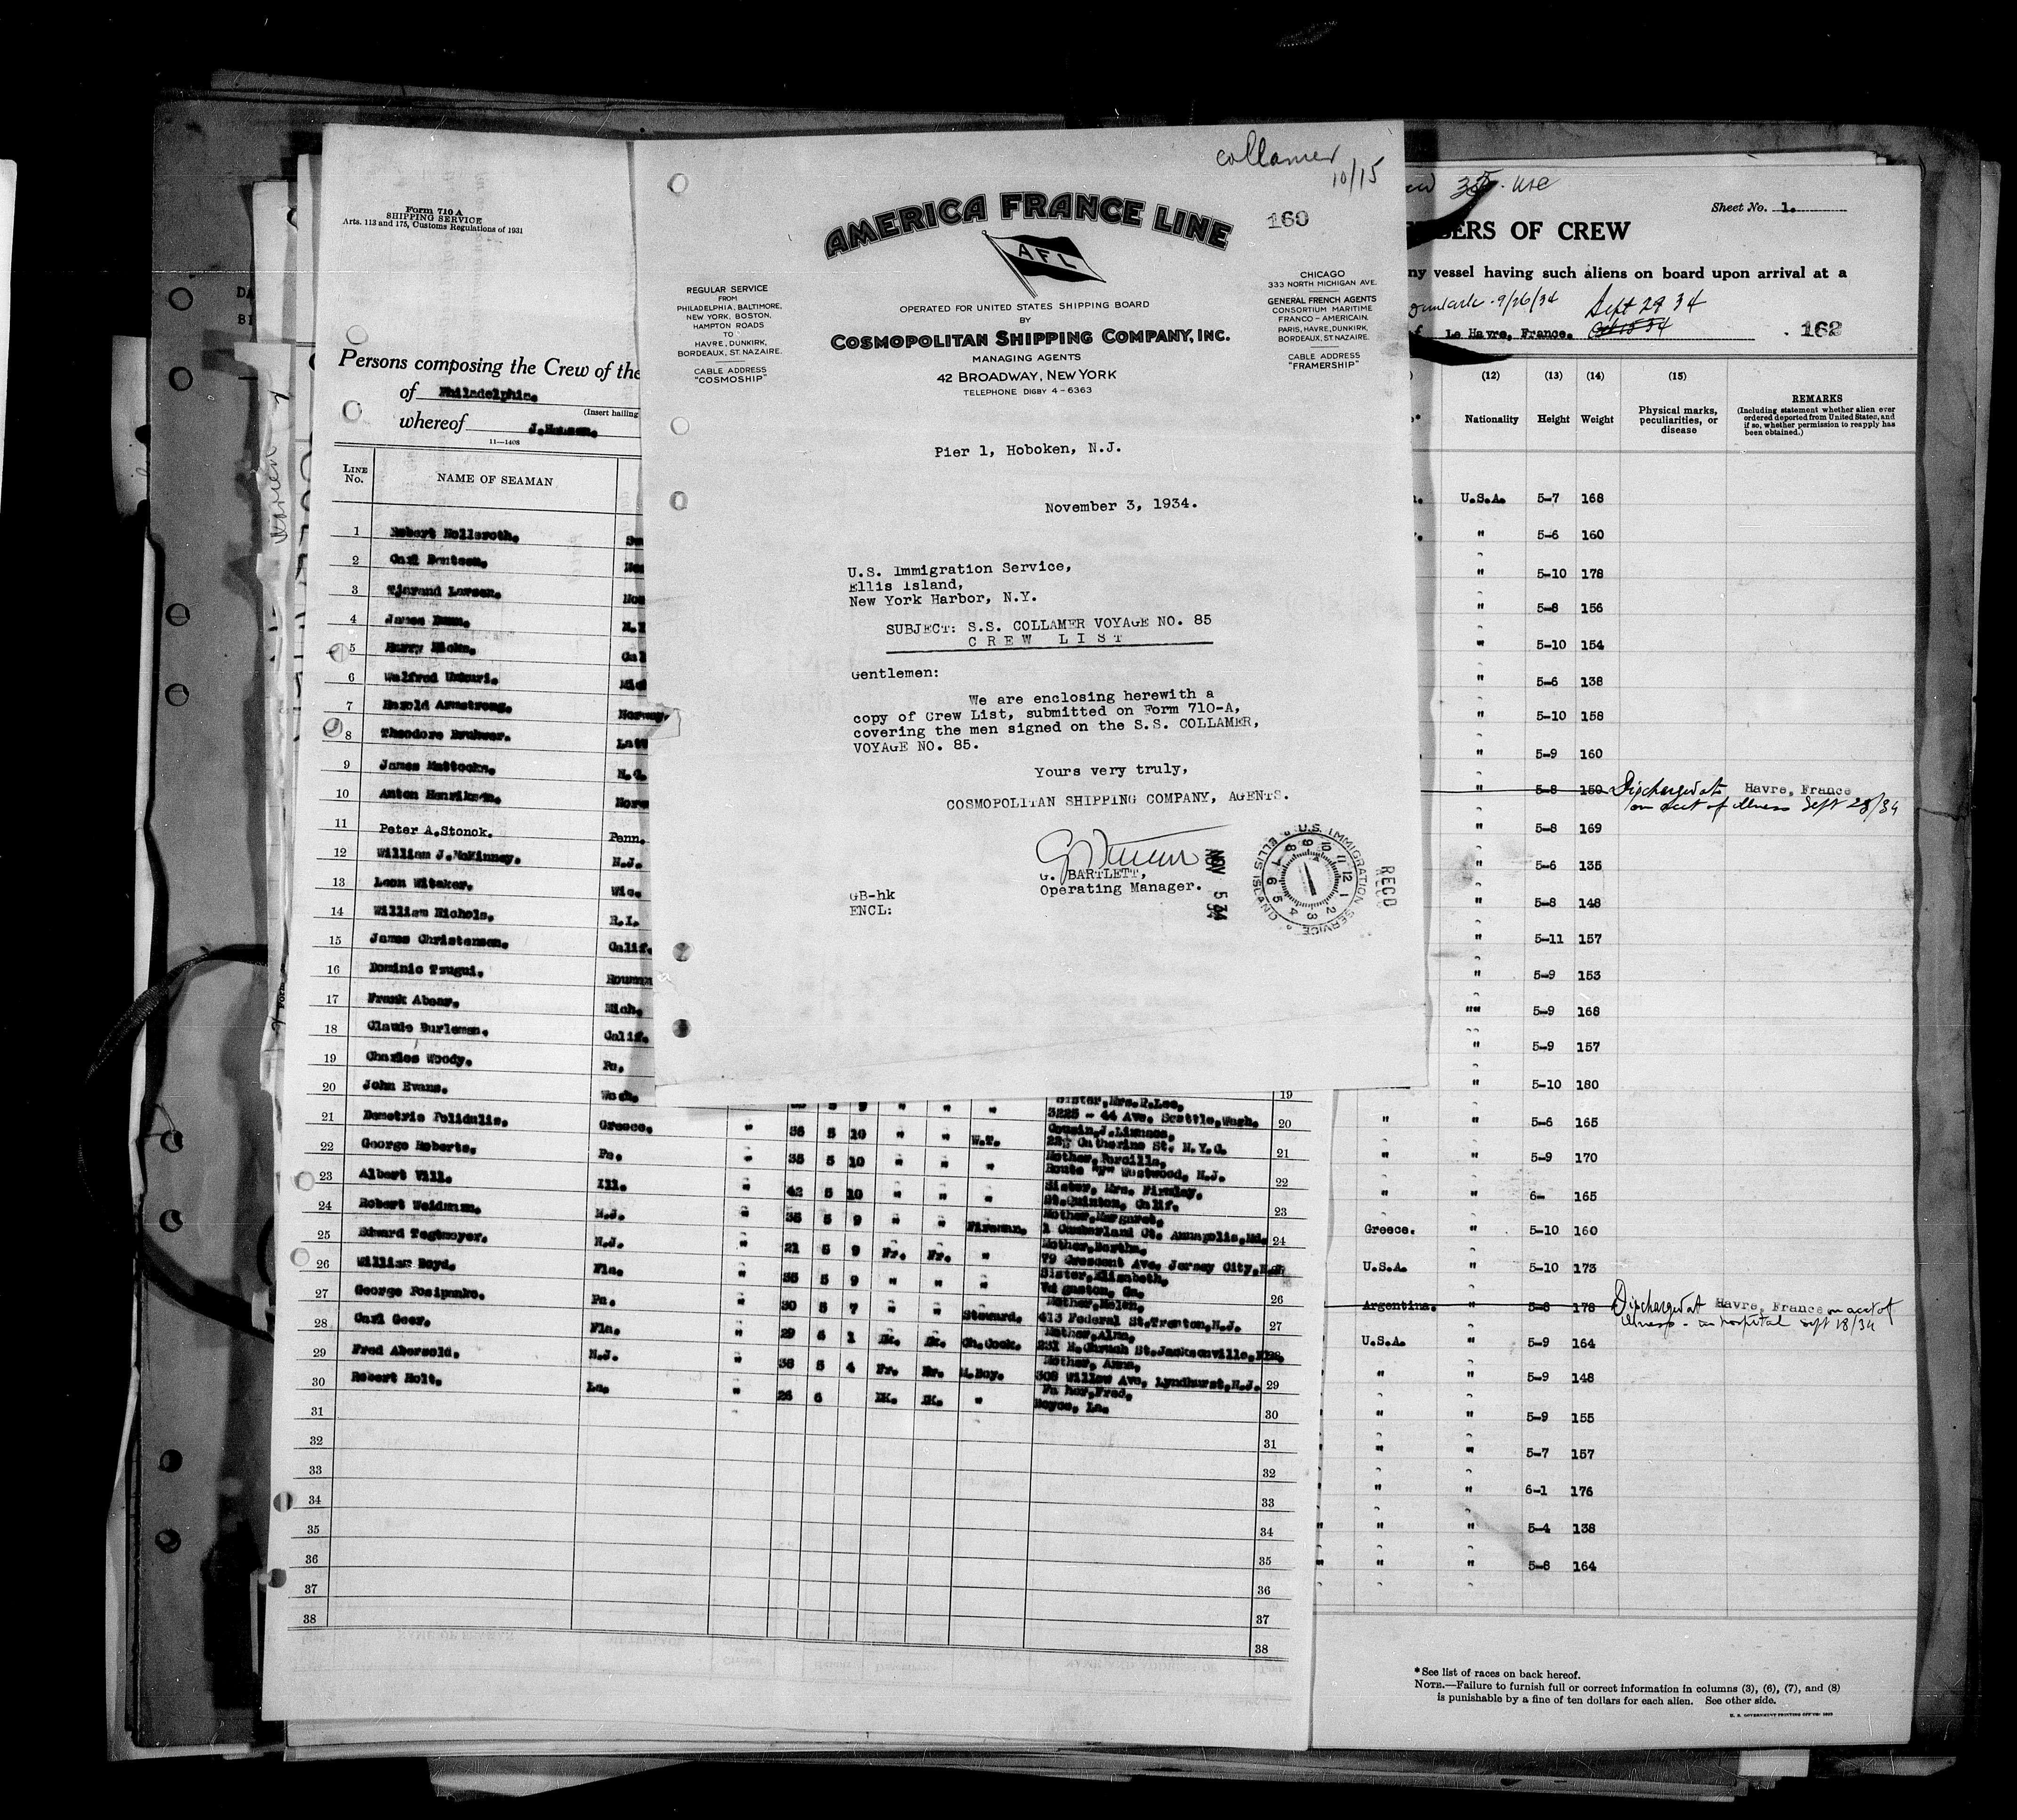 Form 710 A
SHIPPING SERVICE
Arts. 113 and 175, Customs Regulations of 1931
Persons composing the Crew of the
of Philadelphia.
(Insert hailing
whereof J.
11—1408
LINE No.
NAME OF SEAMAN
1 Robert Hollsroth.
2 Carl
3 Larsen.
4 James
5 Harry Hicks.
6
7 Harold Armstrong. Norway.
8 Theodore
9 James Mattocks. N.C.
10 Anton Henriksen.
11 Peter A.Stonok. Penn.
12 William J.McKinney. N.J.
13 Leon Witaker. Wis.
14 William Nichols. R.I.
15 James Christensen. Calif.
16 Dominic Tsugui.
17 Frank Abear. Mich.
18 Claude Burleman. Calif.
19 Charles Woody. Pa.
20 John Evans. Wash.
21 Demetrio Polidulis. Greece. " 36 5 10 " " W.T.
22 George Roberts. Pa. " 35 5 10 " " "
23 Albert Vill. Ill. " 42 5 10 " " "
24 Robert Weidmann. N.J. " 35 5 9 " " Fireman.
25 Edward Tegtmeyer. N.J. " 21 5 9 Fr. Fr. "
26 William Boyd. Fla. " 35 5 9 " " "
27 George Posipanko. Pa. " 30 5 7 " " Steward.
28 Carl Geer. Fla. " 29 6 1 DK. DK. Ch.Cook.
29 Fred Abersold. N.J. " 38 5 4 Fr. Br. M.Boy.
30 Robert Holt. La. " 26 6 DK. DK. "
31
32
33
34
35
36
37
38
Sister,Mrs.R.Lee,
3225 - 44 Ave. Seattle,Wash.
Cousin,J.
Catherine St. N.Y.C.
Mother,
Route Westwood, N.J.
Sister, Mrs.
St.Quinton, Calif.
Mother,Margaret,
1 Cumberland Ct. Annapolis,Md.
Mother,Bertha,
79 Crescent Ave. Jersey City,N.J.
Sister,Elizabeth,
Mother,Helen,
413 Federal St.Trenton,N.J.
Mother,Alma,
231 Jacksonville,Fla.
Mother, Anna,
308 Willow Ave. Lyndhurst,N.J.
Fred,
Boyce, La.
19
20
21
22
23
24
26
27
28
29
30
31
32
33
34
35
36
37
38
collamer
10/15
AMERICA FRANCE LINE
160
AFL
REGULAR SERVICE
FROM
PHILADELPHIA, BALTIMORE,
NEW YORK, BOSTON,
HAMPTON ROADS
TO
HAVRE, DUNKIRK,
BORDEAUX, ST. NAZAIRE.
CABLE ADDRESS
"COSMOSHIP"
OPERATED FOR UNITED STATES SHIPPING BOARD
BY
COSMOPOLITAN SHIPPING COMPANY, INC.
MANAGING AGENTS
42 BROADWAY, NEW YORK
TELEPHONE DIGBY 4-6363
CHICAGO
333 NORTH MICHIGAN AVE.
GENERAL FRENCH AGENTS
CONSORTIUM MARITIME
FRANCO - AMERICAIN.
PARIS, HAVRE, DUNKIRK,
BORDEAUX, ST. NAZAIRE.
CABLE ADDRESS
"FRAMERSHIP"
Pier 1, Hoboken, N.J.
November 3, 1934.
U.S. Immigration Service,
Ellis Island,
New York Harbor, N.Y.
SUBJECT: S.S. COLLAMER VOYAGE NO. 85
C R E W L I S T
Gentlemen:
We are enclosing herewith a
copy of Crew List, submitted on Form 710-A,
covering the men signed on the S.S. COLLAMER,
VOYAGE NO. 85.
Yours very truly,
COSMOPOLITAN SHIPPING COMPANY, AGENTS.
G. BARTLETT,
Operating Manager.
GB-hk
ENCL:
NOV 5 34
U.S. IMMIGRATION SERVICE ELLIS ISLAND
12 1 2 3 4 5 6 7 8 9 10 11
RECD
Sheet No. 1.
BERS OF CREW
ny vessel having such aliens on board upon arrival at a
Dunkirk - 9/26/34 Sept 29 34
Le Havre, France. Oct 15 34
162
(12) (13) (14) (15)
Nationality
Height
Weight
Physical marks, peculiarities, or disease
REMARKS
(Including statement whether alien ever ordered deported from United States, and if so, whether permission to reapply has been obtained.)
U.S.A. 5-7 168
" 5-6 160
" 5-10 178
" 5-8 156
" 5-10 154
" 5-6 138
" 5-10 158
" 5-9 160
" 5-8 150 Discharged at Havre, France
on acct of illness Sept 28/34
" 5-8 169
" 5-6 135
" 5-8 148
" 5-11 157
" 5-9 153
"" 5-9 168
" 5-9 157
" 5-10 180
" " 5-6 165
" " 5-9 170
" " 6- 165
Greece. " 5-10 160
U.S.A. " 5-10 173
Argentina. " 5-8 178 Discharged at Havre, France on acct of
illness - in hospital Sept 18/34
U.S.A. " 5-9 164
" " 5-9 148
" " 5-9 155
" " 5-7 157
" " 6-1 176
" " 5-4 138
" " 5-8 164
*See list of races on back hereof.
NOTE.—Failure to furnish full or correct information in columns (3), (6), (7), and (8)
is punishable by a fine of ten dollars for each alien. See other side.
U. S. GOVERNMENT PRINTING OFFICE